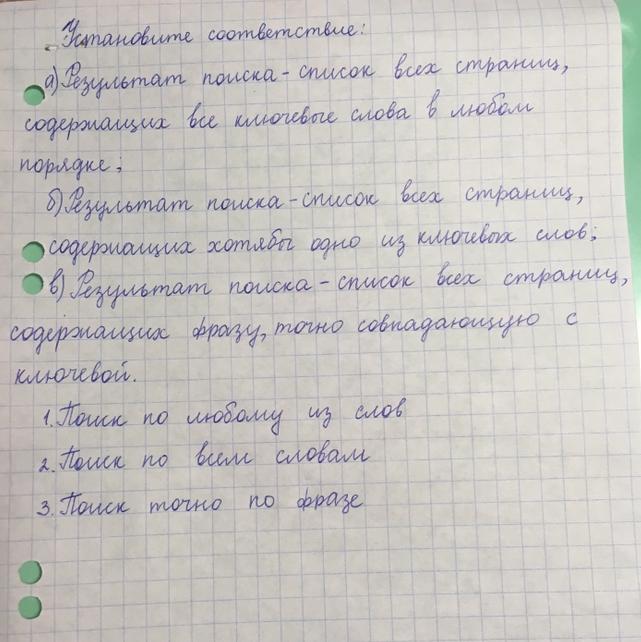 Установите соответствие:
а) Результат поиска - список всех страниц,
содержащих все ключевые слова в любом
порядке;
б) Результат поиска - список всех страниц,
содержащих хотябы одно из ключевых слов;
в) Результат поиска - список всех страниц,
содержащих фразу, точно совпадающую с
ключевой.
1. Поиск по любому из слов
2. Поиск по всем словам
3. Поиск точно по фразе